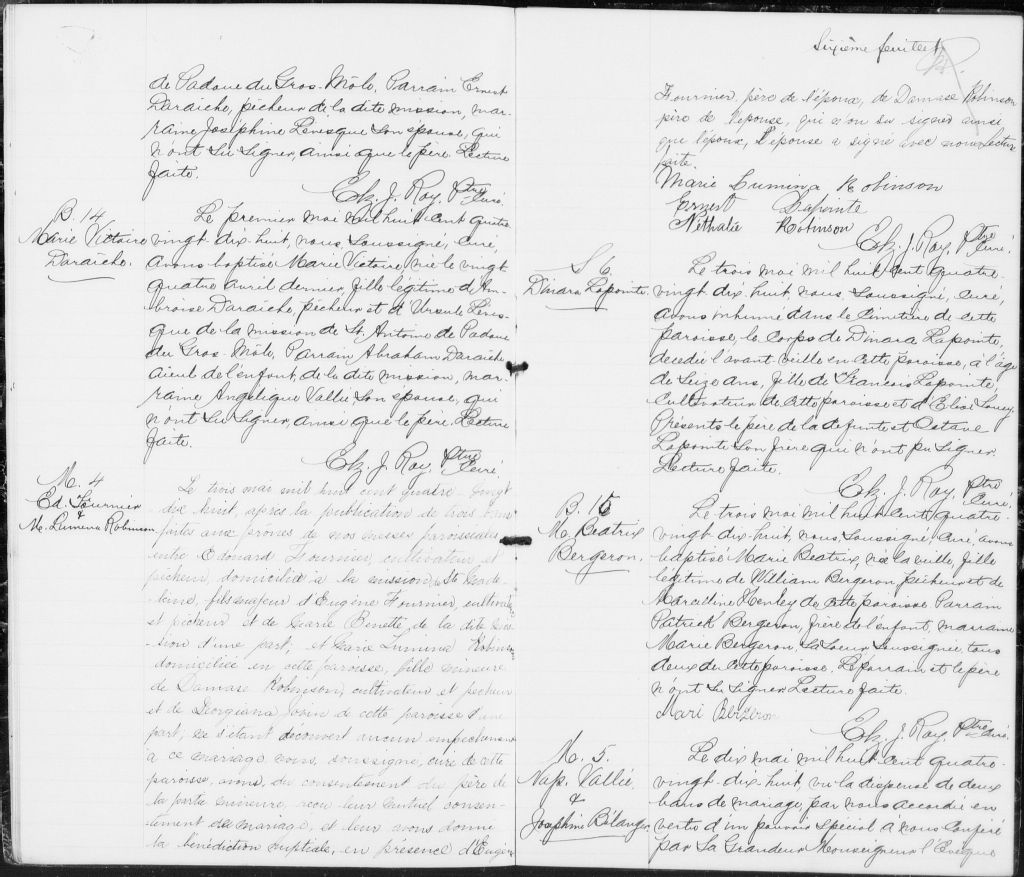 de Padoue du Gros-Môle, Parrain Ernest
Daraîche, pêcheur de la dite mission, mar-
raine Joséphine Lévesque son épouse, qui
n'ont su signer, ainsi que le père. Lecture
faite.
J. Roy, Ptre
Curé.
B. 14
Marie Victoire
Daraîche.
Le premier mai mil huit cent quatre
vingt-dix-huit, nous, soussigné, curé,
avons baptisé Marie Victoire, née le vingt
quatre avril dernier, fille légitime d'Am-
broise Daraîche, pêcheur et d'Ursule Léves-
que de la mission de St. Antoine de Padoue
du Gros-Môle, Parrain Abraham Daraîche
aieul de l'enfant, de la dite mission, mar-
raine Angélique Vallée son épouse, qui
n'ont su signer, ainsi que le père. Lecture
faite.
J. Roy, Ptre
Curé.
M. 4
Ed. Fournier
&
M. Lumena Robinson
Le trois mai mil huit cent quatre-vingt
dix huit, après la publication de trois bans
faites aux prônes de nos messes paroissiales
entre Edouard Fournier, cultivateur et
pêcheur, domicilié à la mission Ste Made-
leine, fils majeur d'Eugène Fournier, cultivateur
et pêcheur et de Marie Pinette de la dite mis-
sion d'une part; et Marie Lumina Robinson
domiciliée en cette paroisse, fille mineure
de Damase Robinson, cultivateur et pêcheur
et de Georgiana de cette paroisse d'une
part; ne s'étant découvert aucun empêchement
à ce mariage nous, soussigné, curé de cette
paroisse, avons, du consentement du père de
la partie mineure, reçu leur mutuel consen-
tement de mariage, et leur avons donné
la bénédiction nuptiale, en présence d'Eugène
Sixième feuillet
Fournier, père de l'époux, de Damase Robinson
père de l'épouse, qui n'ont su signer ainsi
que l'époux, l'épouse a signé avec nous. Lecture
faite.
Marie Lumina Robinson
Ernest Lapointe
Nethalie Robinson
J. Roy, Ptre
Curé.
S. 6.
Dinara Lapointe.
Le trois mai mil huit cent quatre-
vingt dix-huit, nous, soussigné, curé,
avons inhumé dans le cimetière de cette
paroisse, le corps de Dinara Lapointe,
décédée l'avant-veille en cette paroisse, à l'âge
de seize ans, fille de François Lapointe,
cultivateur de cette paroisse et d'Elise
Présents le père de la défunte et Octave
Lapointe son frère qui n'ont pu signer.
Lecture faite.
J. Roy, Ptre
Curé.
B. 15
M. Beatrix
Bergeron.
Le trois mai mil huit cent quatre-
vingt-dix-huit, nous, soussigné, curé, avons
baptisé Marie Beatrix, née la veille, fille
légitime de William Bergeron, pêcheur et de
Marcelline Henley de cette paroisse. Parrain
Patrick Bergeron, frère de l'enfant, marraine
Marie Bergeron, sa soeur soussignée, tous
deux de cette paroisse. Le parrain et le père
n'ont su signer. Lecture faite.
J. Roy, Ptre
Curé.
M. 5.
Nap. Vallée.
&
Josephine Bélanger
Le dix mai mil huit cent quatre-
vingt-dix-huit, vu la dispense de deux
bans de mariage, par nous accordée en
vertu d'un pouvoir spécial à nous conféré
par Sa Grandeur Monseigneur l'Evêque